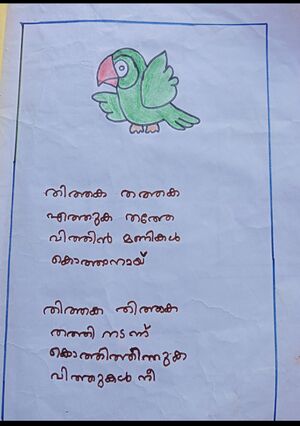 തിത്തക തത്തക
എത്തുക തത്തേ
വിത്തിൻ മണികൾ
കൊത്താനായ്
തിത്തക തിത്തക
തത്തി നടന്ന്
കൊത്തിത്തിന്നുക
വിത്തുകൾ നീ